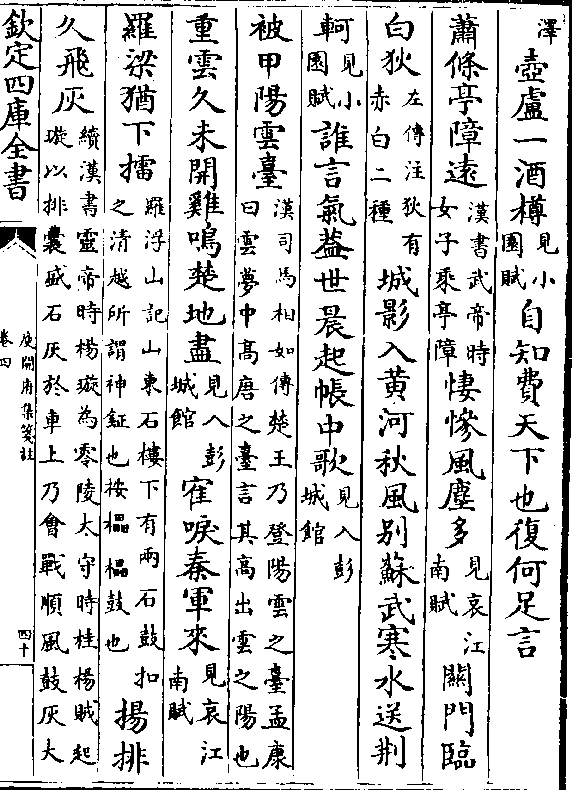 澤壺盧一酒樽見小園賦自知費天下也復何足言
蕭條亭障遠漢書武帝時女子乘亭障悽慘風塵多見哀江南賦關門臨
白狄左傳注狄有赤白二種城影入黄河秋風别蘇武寒水送荆
軻見小園賦誰言氣葢世晨起帳中歌見入彭城館
被甲陽雲臺漢司馬相如傳楚王乃登陽雲之臺孟康曰雲夢中髙唐之臺言其髙出雲之陽也
重雲久未開雞鳴楚地盡見入彭城館寉唳秦軍來見哀江南賦
羅梁猶下擂羅浮山記山東石樓下有兩石鼓扣之清越所謂神鉦也桉櫑櫑鼓也揚排
久飛灰續漢書靈帝時楊璇為零陵太守時桂楊賊起璇以排囊盛石灰於車上乃會戰順風鼓灰大
欽定四庫全書
庾開府集箋註
卷四
四十